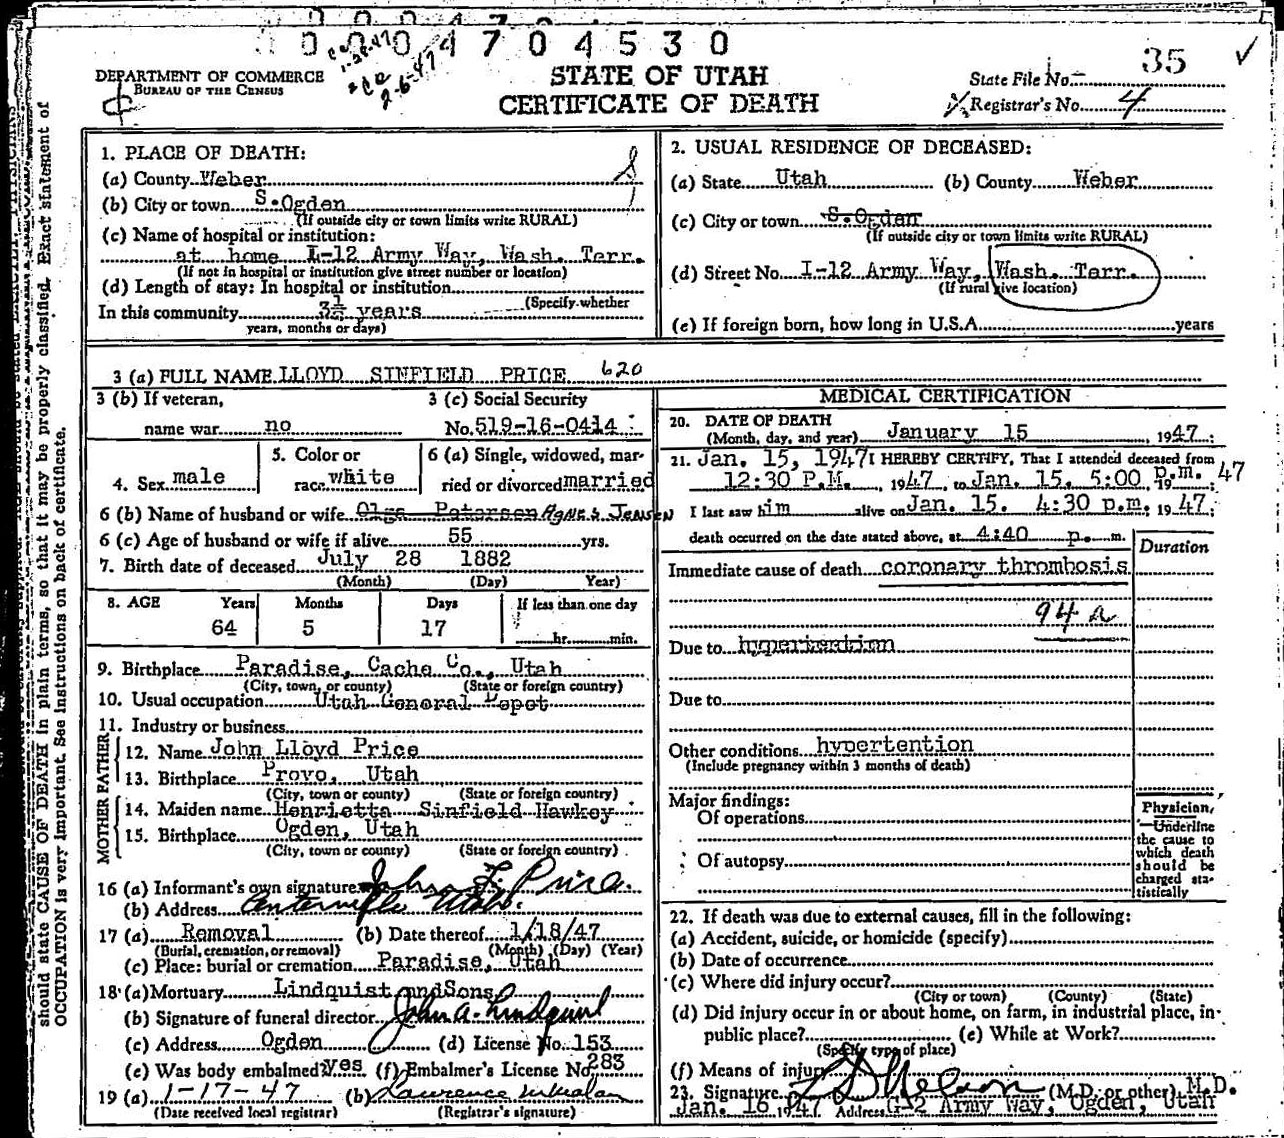 0 0 0 4 7 0 4 5 3 0
1-28-47
2-6-47
35
DEPARTMENT OF COMMERCE
BUREAU OF THE CENSUS
STATE OF UTAH
CERTIFICATE OF DEATH
State File No.
Registrar's No. 4
1. PLACE OF DEATH:
(a) County Weber
(b) City or town S.Ogden
(If outside city or town limits write RURAL)
(c) Name of hospital or institution:
at home I-12 Army Way, Wash. Terr.
(If not in hospital or institution give street number or location)
(d) Length of stay: In hospital or institution
(Specify whether
In this community 3½ years
years, months or days)
2. USUAL RESIDENCE OF DECEASED:
(a) State Utah (b) County Weber
(c) City or town S.Ogden
(If outside city or town limits write RURAL)
(d) Street No. I-12 Army Way, Wash. Terr.
(If rural give location)
(e) If foreign born, how long in U.S.A. years
3 (a) FULL NAME LLOYD SINFIELD PRICE 620
3 (b) If veteran, name war no
3 (c) Social Security No. 519-16-0414
4. Sex male
5. Color or race white
6 (a) Single, widowed, married or divorced married
6 (b) Name of husband or wife Olga Petersen Agnes Jensen
6 (c) Age of husband or wife if alive 55 yrs.
7. Birth date of deceased July 28 1882
(Month) (Day) Year)
8. AGE Years Months Days If less than one day
64 5 17 hr. min.
9. Birthplace Paradise, Cache Co., Utah
(City, town, or county) (State or foreign country)
10. Usual occupation Utah General Depot
11. Industry or business
FATHER
12. Name John Lloyd Price
13. Birthplace Provo, Utah
(City, town or county) (State or foreign country)
MOTHER
14. Maiden name Henrietta Sinfield Hawkey
15. Birthplace Ogden, Utah
(City, town or county) (State or foreign country)
16 (a) Informant's own signature John L. Price
(b) Address Centerville Utah.
17 (a) Removal (b) Date thereof 1/18/47
(Burial, cremation, or removal) (Month) (Day) (Year)
(c) Place: burial or cremation Paradise, Utah
18 (a) Mortuary Lindquist andSons
(b) Signature of funeral director John A. Lindquist
(c) Address Ogden (d) License No. 153
(e) Was body embalmed? yes (f) Embalmer's License No. 283
19 (a) 1-17-47 (b) Lawrence
(Date received local registrar) (Registrar's signature)
MEDICAL CERTIFICATION
20. DATE OF DEATH
(Month, day, and year) January 15 1947;
21. Jan. 15, 1947 I HEREBY CERTIFY, That I attended deceased from
12:30 P.M. 1947, to Jan. 15. 5:00 p.m. 19 47
I last saw him alive on Jan. 15. 4:30 p.m, 19 47;
death occurred on the date stated above, at 4:40 p. m.
Duration
Immediate cause of death coronary thrombosis
94 a
Due to hypertention
Due to
Other conditions hypertention
(Include pregnancy within 3 months of death)
Major findings:
Of operations
Of autopsy
Physician,
Underline
the cause to
which death
should be
charged sta-
tistically
22. If death was due to external causes, fill in the following:
(a) Accident, suicide, or homicide (specify)
(b) Date of occurrence
(c) Where did injury occur?
(City or town) (County) (State)
(d) Did injury occur in or about home, on farm, in industrial place, in
public place? (e) While at Work?
(Specify type of place)
(f) Means of injury
23. Signature L D Nelson (M.D. or other) M.D.
Jan. 16 1947 Address G-2 Army Way, Ogden, Utah
should state CAUSE OF DEATH in plain terms, so that it may be properly classified. Exact statement of
OCCUPATION is very important. See instructions on back of certificate.